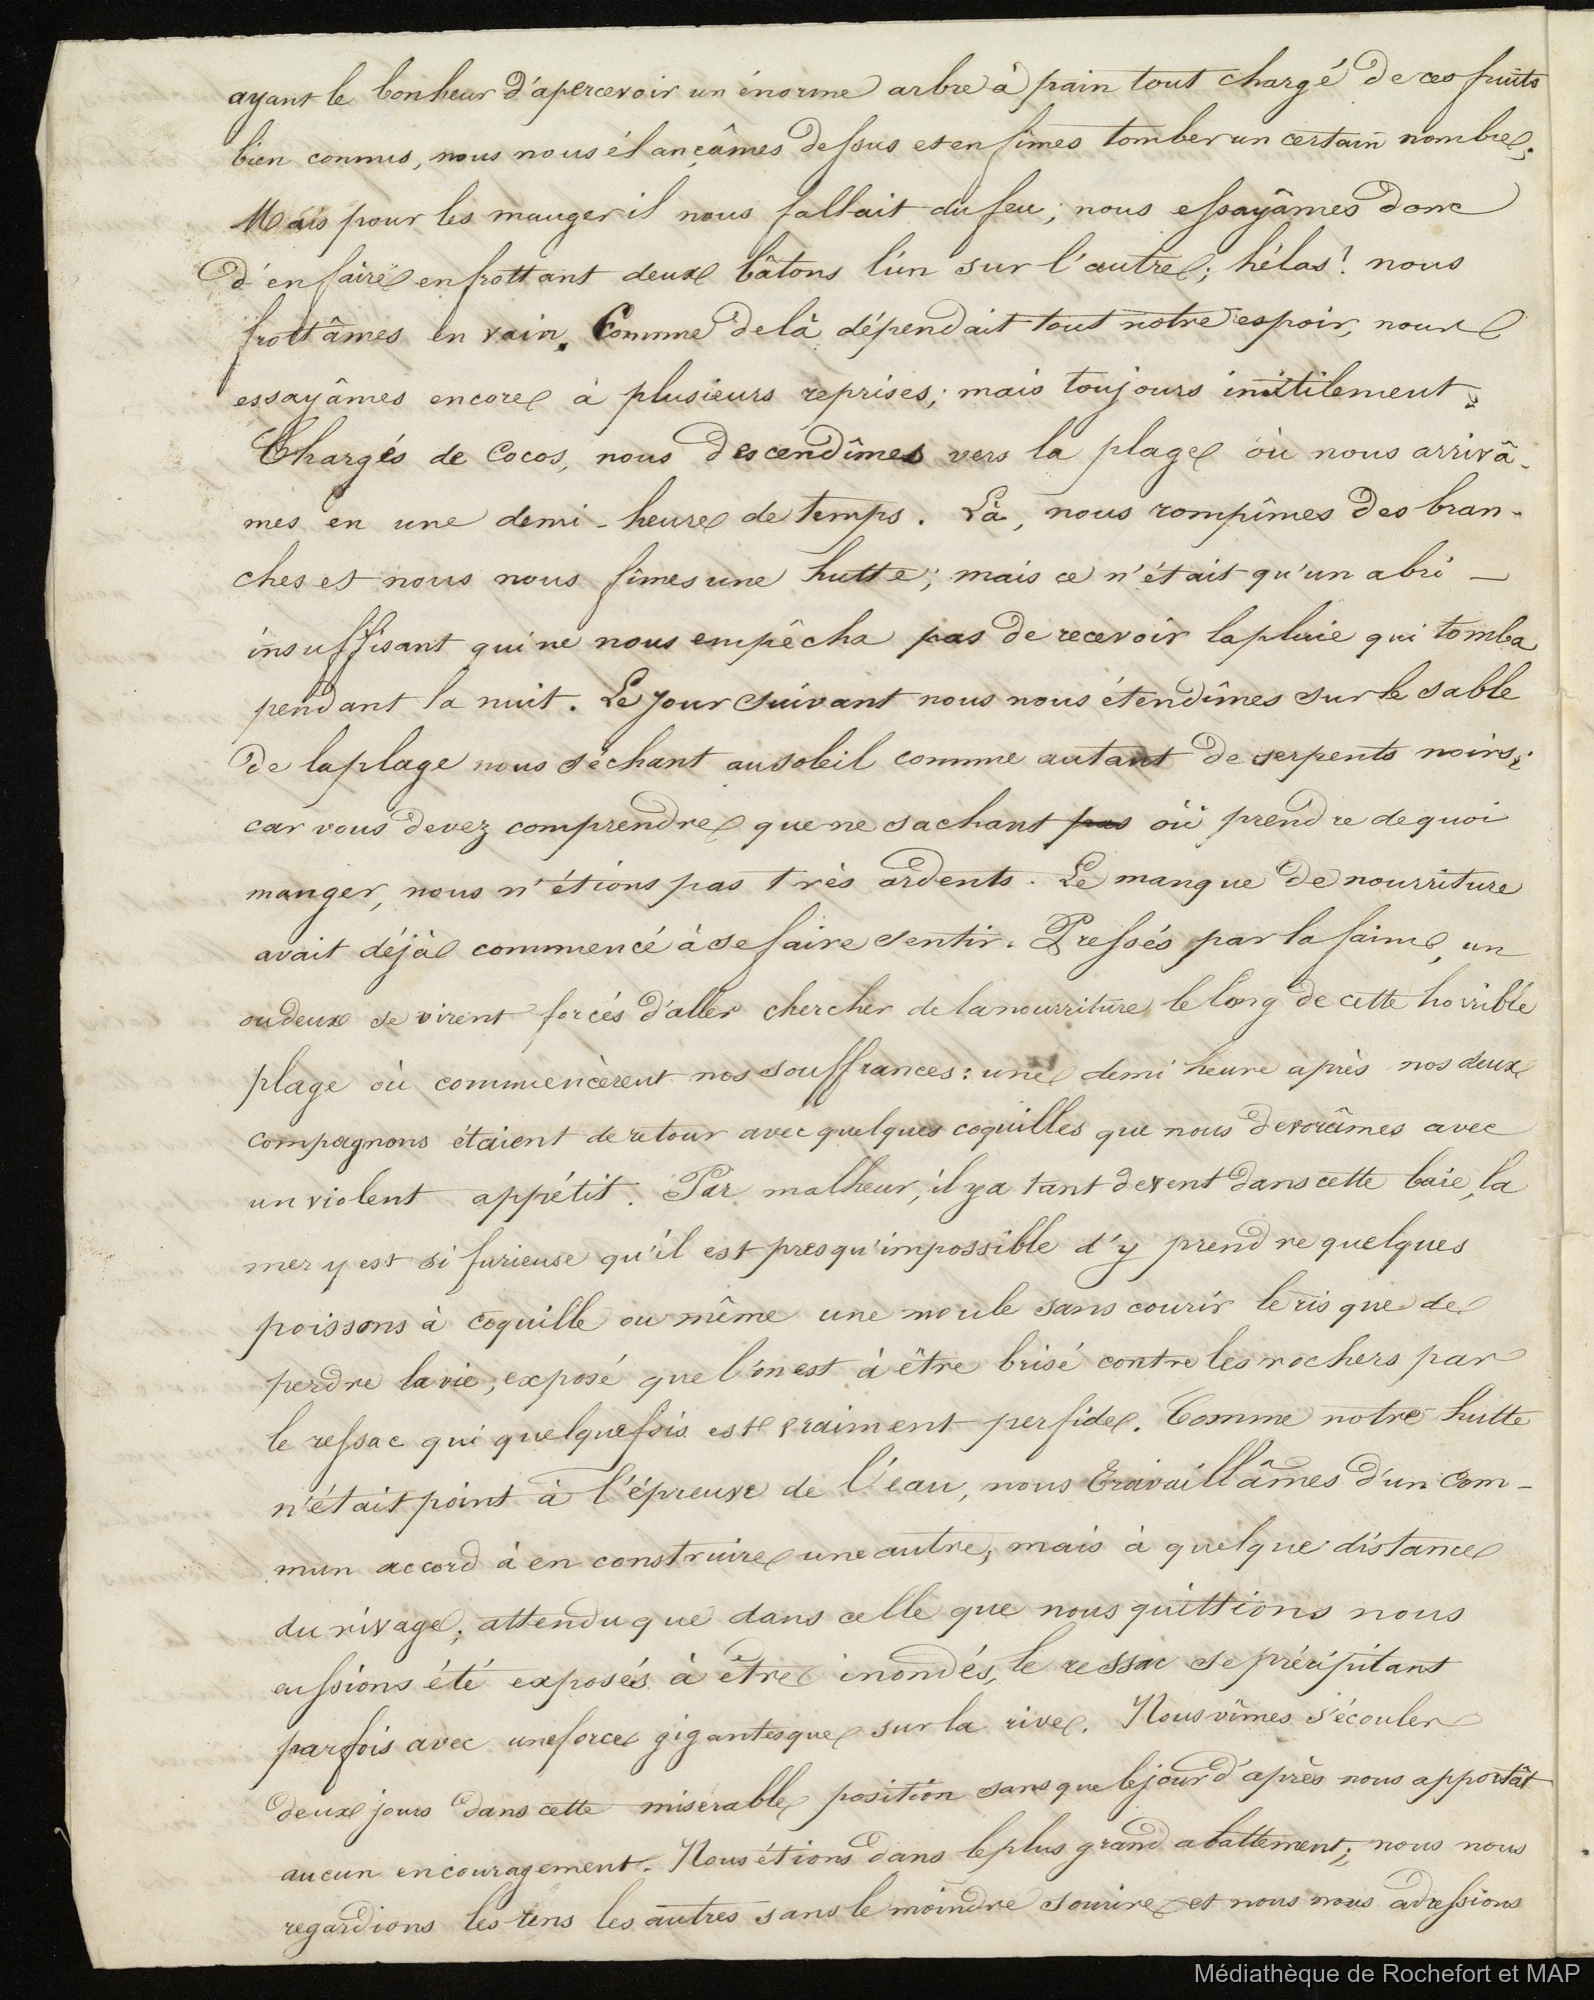 ayant le bonheur d'apercevoir un énorme arbre à pain tout chargé de ces fruits
bien connus, nous nous élançâmes dessus et en fîmes tomber un certain nombre;
Mais pour les manger il nous fallait du feu; nous essayâmes donc
d'en faire en frottant deux bâtons l'un sur l'autre; hélas! nous
frottâmes en vain. Comme de là dépendait tout notre espoir, nous
essayâmes encore à plusieurs reprises; mais toujours inutilement.
Chargés de Cocos, nous descendîmes vers la plage où nous arrivâ-
mes en une demi-heure de temps. Là, nous rompîmes des bran-
ches et nous nous fîmes une hutte; mais ce n'était qu'un abri
insuffisant qui ne nous empêcha pas de recevoir la pluie qui tomba
pendant la nuit. Le jour suivant nous nous étendîmes sur le sable
de la plage nous séchant au soleil comme autant de serpents noirs;
car vous devez comprendre que ne sachant pas où prendre de quoi
manger, nous n'étions pas très ardents. Le manque de nourriture
avait déjà commencé à se faire sentir. Pressés par la faim, un
ou deux se virent forcés d'aller chercher de la nourriture le long de cette horrible
plage où commencèrent nos souffrances: une demi heure après nos deux
compagnons étaient de retour avec quelques coquilles que nous devorâmes avec
un violent appétit. Par malheur, il y a tant de vent dans cette baie, la
mer y est si furieuse qu'il est presqu'impossible d'y prendre quelques
poissons à coquille ou même une moule sans courir le risque de
perdre la vie, exposé que l'on est à être brisé contre les rochers par
le ressac qui quelquefois est vraiment perfide. Comme notre hutte
n'était point à l'épreuve de l'eau, nous travaillâmes d'un com-
mun accord à en construire une autre, mais à quelque distance
du rivage; attendu que dans celle que nous quittions nous
eussions été exposés à être inondés, le ressac se précipitant
parfois avec une force gigantesque sur la rive. Nous vîmes s'écouler
deux jours dans cette misérable position sans que le jour d'après nous apportât
aucun encouragement. Nous étions dans le plus grand abattement; nous nous
regardions les uns les autres sans le moindre sourire et nous nous adressions
Médiathèque de Rochefort et MAP